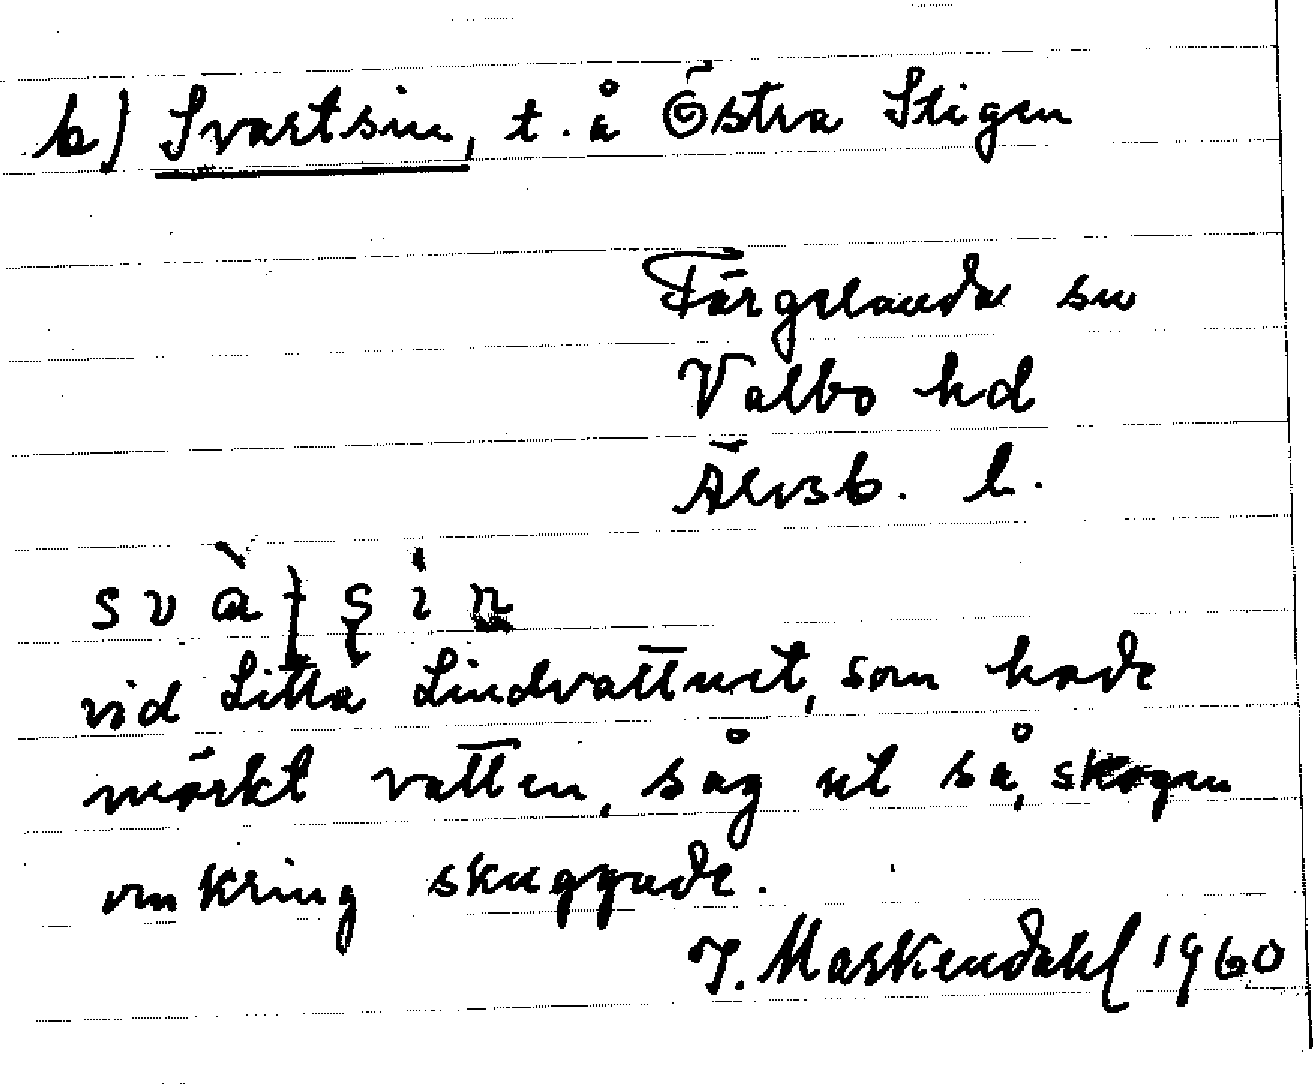 b) Svartsin, t. å Östra Stigen
Färgelanda sn
Valbo hd
Älvsb. l.
vid Lilla Lindvattnet, som hade
mörkt vatten, såg ut så, skogen
omkring skuggade.
J. Markendahl 1960